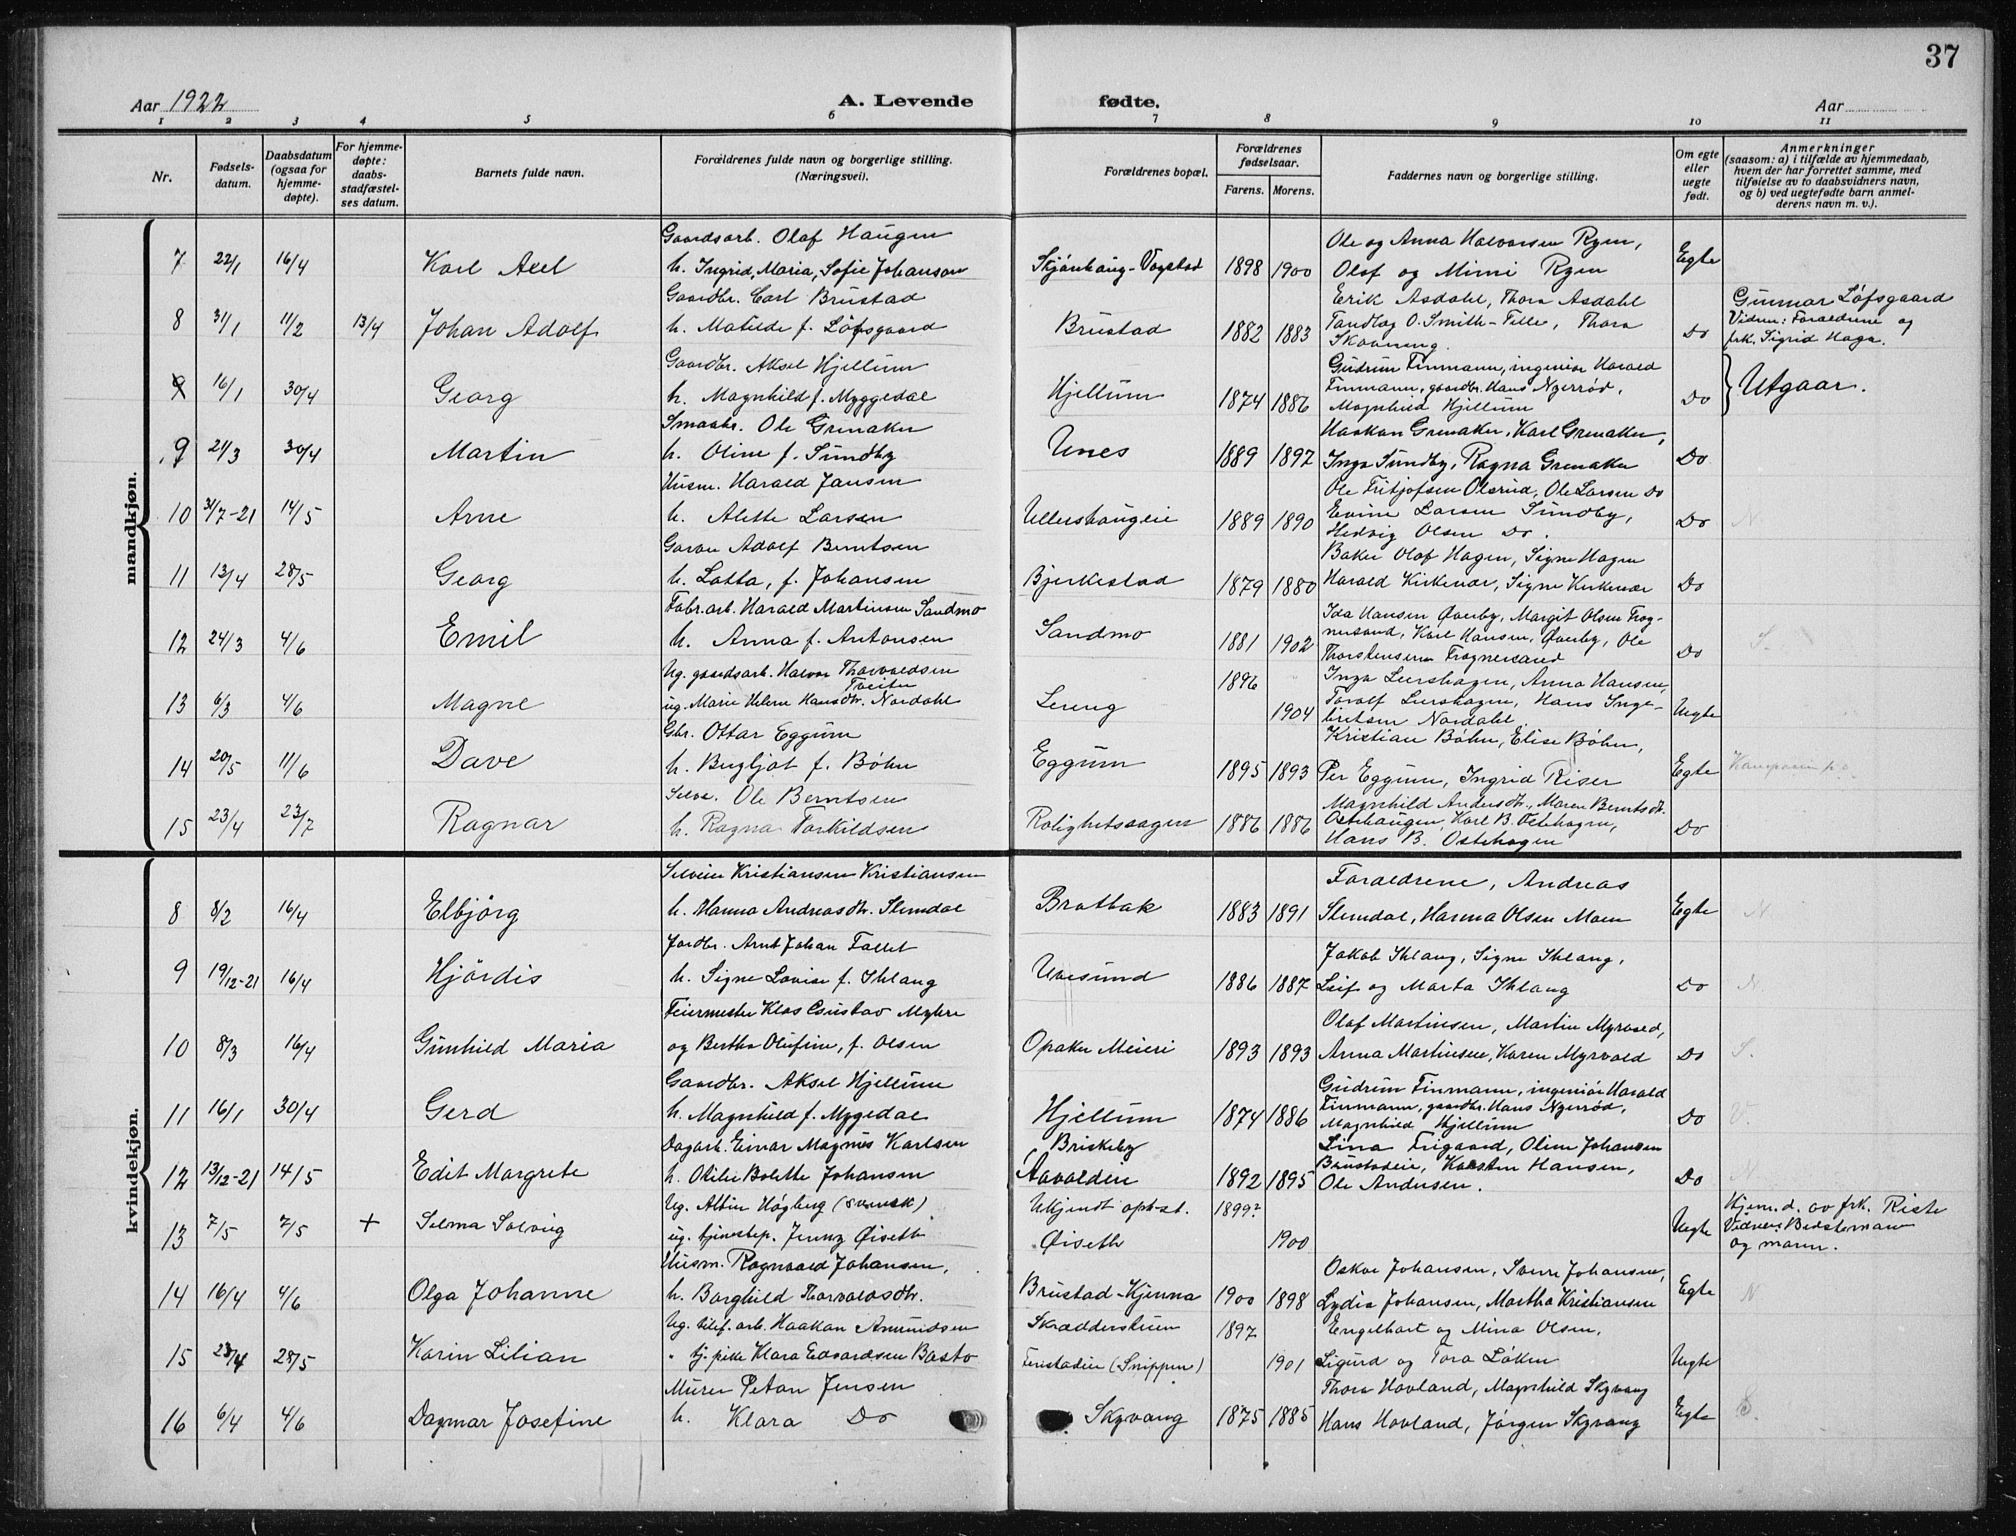 37
Aar 1922 A. Levende fødte. Aar
1 2 3 4 5 6 7 8 9 10 11
Nr. Fødsels-datum. Daabsdatum (ogsaa for hjemme-døpte). For hjemme-døpte: daabs-stadfæstel-ses datum. Barnets fulde navn. Forældrenes fulde navn og borgerlige stilling. (Næringsvei). Forældrenes bopæl. Forældrenes fødselsaar. Farens. Morens. Faddernes navn og borgerlige stilling. Om egte eller uegte født. Anmerkninger (saasom: a) i tilfælde av hjemmedaab, hvem der har forrettet samme, med tilføielse av to daabsvidners navn, og b) ved uegtefødte barn anmel-derens navn m. v.).
mandkjøn.
Gaardsarb. Olaf Haugen Ole og Anna Halvorsen Ryen,
7 22/1 16/4 Karl Axel h. Ingrid, Maria, Sofie Johanson Skjønhaug-Vogstad 1898 1900 Olaf og Mimi Ryen Egte
Gaardbr. Carl Brustad Erik Asdahl, Thora Asdahl Gunnar Löfsgaard
8 31/1 11/2 13/4 Johan Adolf h. Matilde f. Löfsgaard Brustad 1882 1883 Tandlæg O. Smith-Tille, Thora Do Vidner: Forældrene og
frk. Sigrid Haga.
Gaardbr. Aksel Hjellum Gudrun Finmann, ingeniør Harald
9 16/1 30/4 Georg h. Magnhild f. Myggedal Hjellum 1874 1886 Finmann, gaardbr. Hans Nyerrød, Do Utgaar.
Magnhild Hjellum
Smaabr. Ole Grenaker Haakon Grenaker, Karl Grenaker,
9 21/3 30/4 Martin h. Oline f. Sundby Unes 1889 1897 Inga Sundby, Ragna Grenaker Do
Husm. Harald Jansen Ole Fritjofsen Olsrud, Ole Larsen Do
10 31/7-21 14/5 Arne h. Alette Larsen Ullershaugeie 1889 1890 Evine Larsen Sundby, Do N
Hedvig Olsen Do.
Garver Adolf Berntsen Baker Olaf Hagen, Signe Hagen
11 13/4 28/5 Georg h. Lotta, f. Johansen Bjerkestad 1879 1880 Harald Kirkenær, Signe Kirkenær Do
Fabr.arb. Harald Martinsen Sandmo Ida Hansen Øverby, Margit Olsen Frog-
12 24/3 4/6 Emil h. Anna f. Antonsen Sandmo 1881 1902 nersand, Karl Hansen, Øverby, Ole Do S.
Thorstensen Frognersand
Ug. gaardsarb. Halvor Thorvaldsen Tveiten 1896 Inga Leirshagen, Anna Hansen,
13 6/3 4/6 Magne ug. Marie Helene Hansdtr. Nordahl Lereng 1904 Torolf Leirshagen, Hans Inge- Uegte
bretsen Nordahl
Gbr. Ottar Eggum Kristian Bøhn, Elise Bøhn,
14 20/5 11/6 Dave h. Bergljot f. Bøhn Eggum 1895 1893 Per Eggum, Ingrid Riser Egte
Selve. Ole Berntsen Magnhild Andersdtr., Maren Berntsdtr.
15 23/4 23/7 Ragnar h. Ragna Torkildsen Rolighetssagen 1886 1886 Ostehaugen, Karl B. Ostehagen, Do
Hans B. Ostehagen
kvindekjøn.
Selveier Kristiansen Kristiansen Forældrene, Andreas
8 8/2 16/4 Elbjørg h. Hanna Andreasdtr. Slemdal Bratbak 1883 1891 Slemdal, Hanna Olsen Moen Egte N
Jordbr. Arnt Johan Tallet Jakob Ihlang, Signe Ihlang,
9 19/12-21 16/4 Hjördis h. Signe Lovise f. Ihlang Uvesund 1886 1887 Leif og Marta Ihlang Do N.
Feiermester Klas Gustav Myhre Olaf Martinsen, Martin Myrvold,
10 8/3 16/4 Gunhild Maria og Bertha Olufine, f. Olsen Opaker Meieri 1893 1893 Anna Martinsen, Karen Myrvold Do S.
Gaardbr. Aksel Hjellum Gudrun Finmann, ingeniør Harald
11 16/1 30/4 Gerd h. Magnhild f. Mygedal Hjellum 1874 1886 Finmann, gaardbr. Hans Nyerrød, Do
Magnhild Hjellum
Dagarb. Einar Magnus Karlsen Briskeby Lina Frigaard, Oline Johansen
12 13/12-21 14/5 Edit Margrete h. Otilie Bolette Johansen Aavoldeie 1892 1895 Brustadeie, Karsten Hansen, Do N
Ole Andersen.
Ug. Albin Högberg (svensk) Ukjendt oph.st. 1899? Hjem.d. av frk. Riste
13 7/5 7/5 + Selma Solveig ug. tjenestep. Jenny Øiseth Øiseth 1900 Uegte Vidner: Bedstemor
og mann.
Husm. Ragnvald Johansen, Oskar Johansen, Sverre Johansen,
14 16/4 4/6 Olga Johanne h. Borghild Thorvaldsdtr. Brustad-Kjenna 1900 1898 Lydia Johansen, Martha Kristiansen Egte N
Ug. telef. arb. Haakon Amundsen Skrædderstuen 1897 Engelhart og Mina Olsen,
15 23/4 28/5 Karin Lilian " tj. pike Klara Edvardsen Bastø (Snippen) 1901 Sigurd og Tora Løken Uegte
Murer Petan Jensen Thora Hovland, Magnhild Skyvang
16 6/4 4/6 Dagmar Josefine h. Klara Do Skyvang 1875 1885 Hans Hovland, Jørgen Skyvang Egte S.